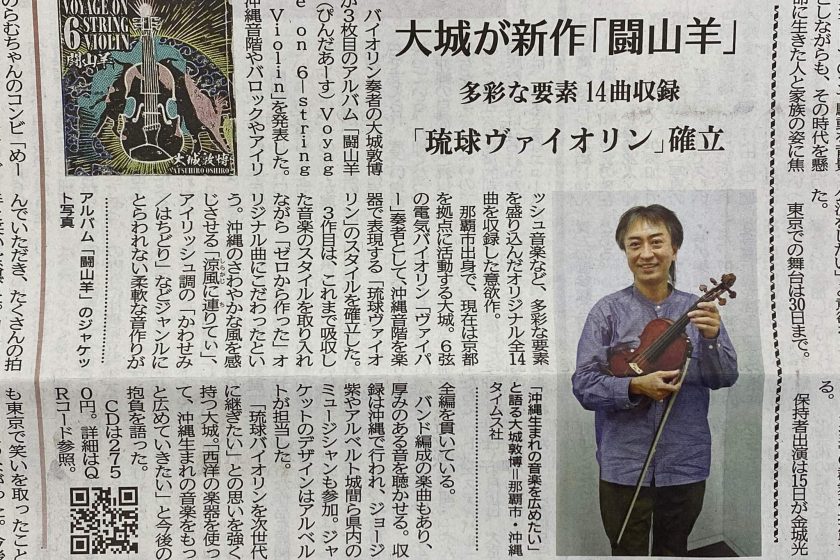 大城が新作「闘山羊」
多彩な要素 14曲収録
「琉球ヴァイオリン」確立
VOYAGE ON
6 STRING
VIOLIN
闘山羊
大城敦博
ATSUHIRO OSHIRO
バイオリン奏者の大城敦博
が3枚目のアルバム「闘山羊
(ぴんだあーす)Voyag
e on 6―string
Violin」を発表した。
沖縄音階やバロックやアイリ
ッシュ音楽など、多彩な要素
を盛り込んだオリジナル全14
曲を収録した意欲作。
那覇市出身で、現在は京都
を拠点に活動する大城。6弦
の電気バイオリン「ヴァイパ
ー」奏者として、沖縄音階を楽
器で表現する「琉球ヴァイオ
リン」のスタイルを確立した。
3作目は、これまで吸収し
た音楽のスタイルを取り入れ
ながら「ゼロから作った」オ
リジナル曲にこだわったとい
う。沖縄のさわやかな風を感
じさせる「涼風に連りてぃ」、
アイリッシュ調の「かわせみ
/はちどり」などジャンルに
とらわれない柔軟な音作りが
全編を貫いている。
バンド編成の楽曲もあり、
厚みのある音を聴かせる。収
録は沖縄で行われ、ジョージ
紫やアルベルト城間ら県内の
ミュージシャンも参加。ジャ
ケットのデザインはアルベル
トが担当した。
「琉球バイオリンを次世代
に継ぎたい」との思いを強く
持つ大城。「西洋の楽器を使っ
て、沖縄生まれの音楽をもっ
と広めていきたい」と今後の
抱負を語った。
CDは275
0円。詳細はQ
Rコード参照。
アルバム「闘山羊」のジャケッ
ト写真
「沖縄生まれの音楽を広めたい」
と語る大城敦博=那覇市・沖縄
タイムス社
としながらも、その時代を懸
命に生きた人と家族の姿に焦
た。
東京での舞台は30日まで。
る。
保持者出演は15日が金城光
のらむちゃんのコンビ「めー
んでいただき、たくさんの拍
も東京で笑いを取ったこと